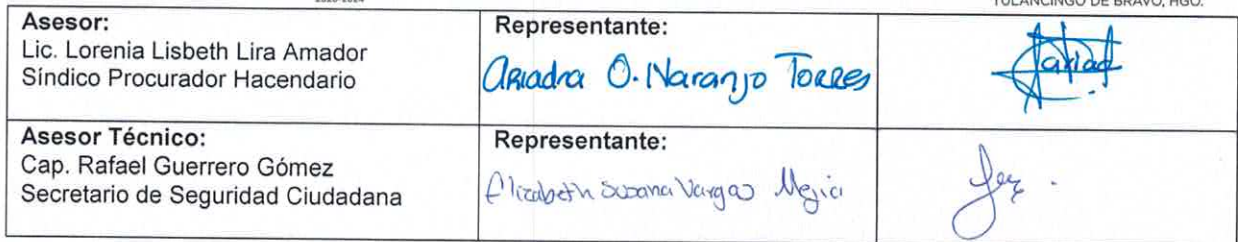 2020-2024
TULANCINGO DE BRAVO, HGO.
Asesor:
Lic. Lorenia Lisbeth Lira Amador
Síndico Procurador Hacendario
Representante:
Ariadna O. Naranjo Torres
Asesor Técnico:
Cap. Rafael Guerrero Gómez
Secretario de Seguridad Ciudadana
Representante:
Elizabeth Susana Vargas Mejia